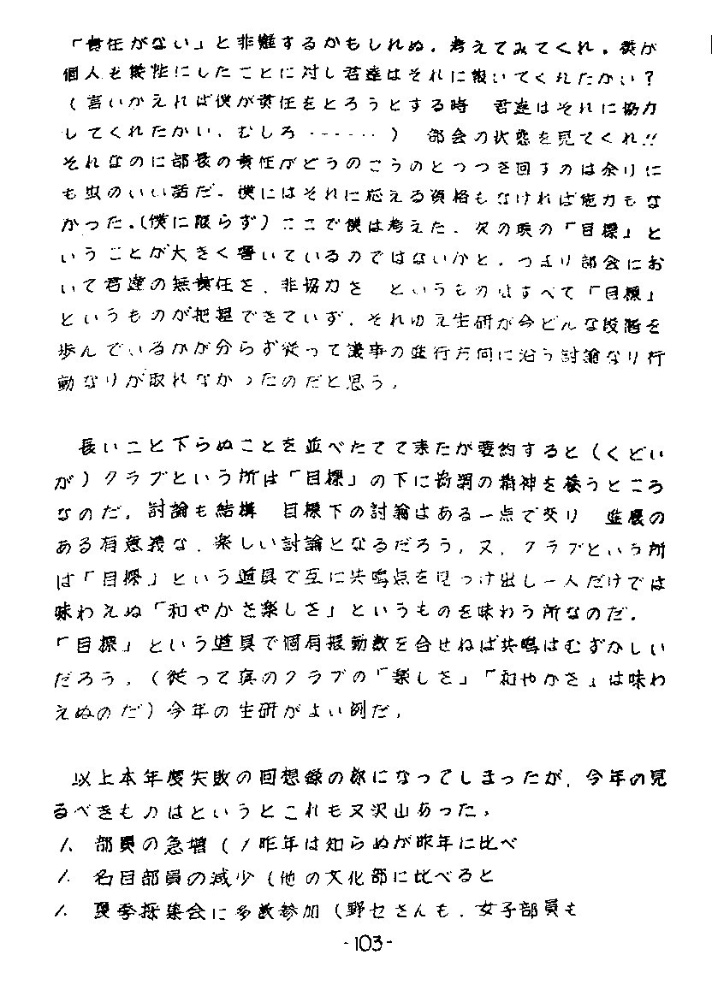 「責任がない」と非難するかもしれぬ。考えてみてくれ。僕が
個人を犠牲にしたことに対し君達はそれに報いてくれたかい？
（言いかえれば僕が責任をとろうとする時　君達はそれに協力
してくれたかい、むしろ………）　部会の状態を見てくれ!!
それなのに部長の責任がどうのこうのとつつき回すのは余りに
も虫のいい話だ。僕にはそれに応える資格もなければ能力もな
かった。（僕に限らず）ここで僕は考えた。次の時の「目標」と
いうことが大きく響いているのではないかと。つまり部会にお
いて君達の無責任を、非協力を　というものはすべて「目標」
というものが把握できていず、それゆえ生研が今どんな段階を
歩んでいるかが分らず従って議事の進行方向に沿う討論なり行
動なりが取れなかったのだと思う。
長いこと下らぬことを並べたてて来たが要約すると（くどい
が）クラブという所は「目標」の下に協調の精神を養うところ
なのだ。討論も結構　目標下の討論はある一点で交り　進展の
ある有意義な、楽しい討論となるだろう。又、クラブという所
は「目標」という道具で互に共鳴点を見つけ出し一人だけでは
味わえぬ「和やかさ楽しさ」というものを味わう所なのだ。
「目標」という道具で個有振動数を合せねば共鳴はむずかしい
だろう。（従って真のクラブの「楽しさ」「和やかさ」は味わ
えぬのだ）今年の生研がよい例だ。
以上本年度失敗の回想録の様になってしまったが、今年の見
るべきものはというとこれも又沢山あった。
1. 部員の急増（1昨年は知らぬが昨年に比べ
1. 名目部員の減少（他の文化部に比べると
1. 夏季採集会に多数参加（野セさんも、女子部員も
-103-